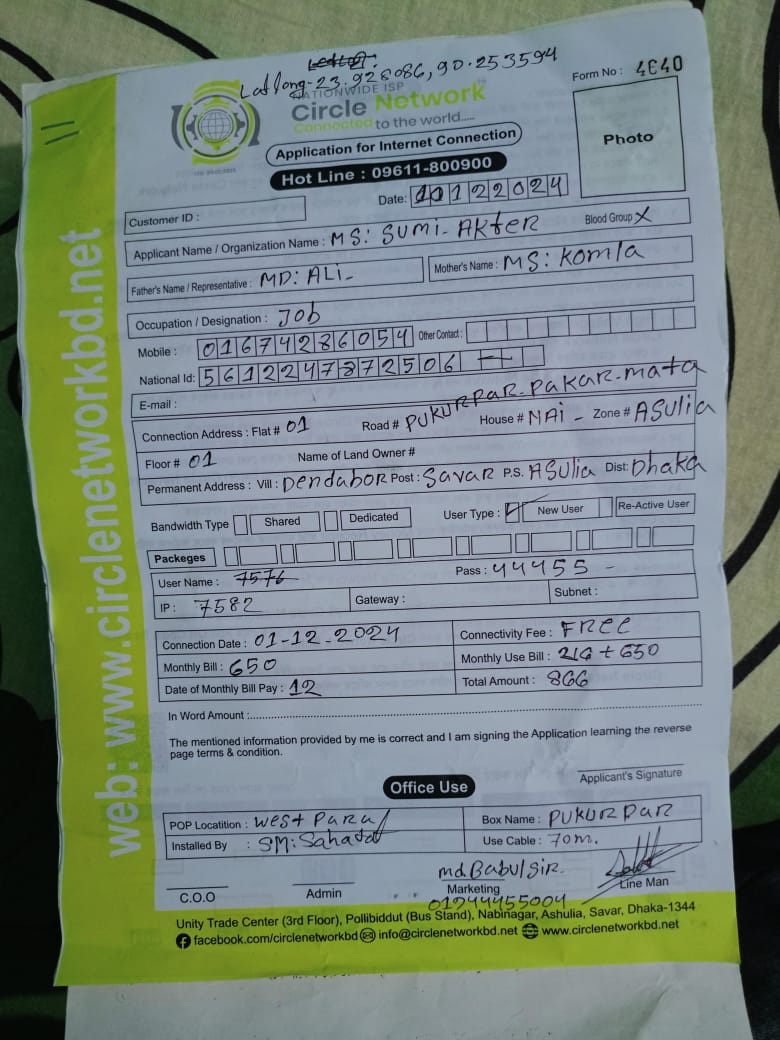 Lat long-23.928086, 90.253594
NATIONWIDE ISP
Circle Network
Connected to the world.....
Form No : 4640
Photo
Application for Internet Connection
Hot Line : 09611-800900
Date: 10122024
Customer ID :
Applicant Name / Organization Name : MS: SUMI- AKter Blood Group X
Father's Name / Representative : MD: ALi- Mother's Name : MS: Komla
Occupation / Designation : Job
Mobile : 01674286054 Other Contact :
National Id: 5612247872506
E-mail :
Connection Address : Flat # 01 Road # PUKURPAR-PAKAR-mata House # NAi - Zone # ASulia
Floor # 01 Name of Land Owner #
Permanent Address : Vill : Dendabor Post : Savar P.S. ASulia Dist: Dhaka
Bandwidth Type Shared Dedicated User Type : New User Re-Active User
Packeges
User Name : 7576 Pass : 44455 -
IP : 7582 Gateway : Subnet :
Connection Date : 01-12-2024 Connectivity Fee : FREE
Monthly Bill : 650 Monthly Use Bill : 216 + 650
Date of Monthly Bill Pay : 12 Total Amount : 866
In Word Amount :
The mentioned information provided by me is correct and I am signing the Application learning the reverse
page terms & condition.
Applicant's Signature
Office Use
POP Locatition : West Para Box Name : PUKURPAR
Installed By : SM: Use Cable : 70m.
md. Babul Sir.
C.O.O Admin Marketing Line Man
01244455004
Unity Trade Center (3rd Floor), Pollibiddut (Bus Stand), Nabinagar, Ashulia, Savar, Dhaka-1344
facebook.com/circlenetworkbd info@circlenetworkbd.net www.circlenetworkbd.net
web: www.circlenetworkbd.net